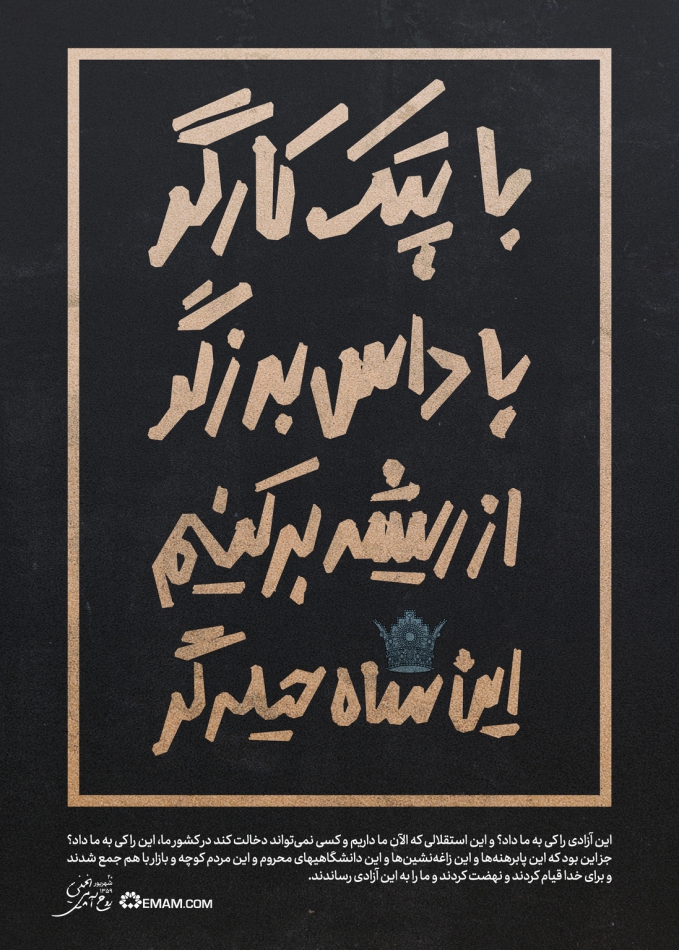 با پتک کارگر
با داس برزگر
از ریشه برکنیم
این شاه حیله‌گر
این آزادی را کی به ما داد؟ و این استقلالی که الآن ما داریم و کسی نمی‌تواند دخالت کند در کشور ما، این را کی به ما داد؟
جز این بود که این پابرهنه‌ها و این زاغه‌نشین‌ها و این دانشگاهیهای محروم و این مردم کوچه و بازار با هم جمع شدند
و برای خدا قیام کردند و نهضت کردند و ما را به این آزادی رساندند.
۲۰
شهریور
۱۳۵۹
EMAM.COM